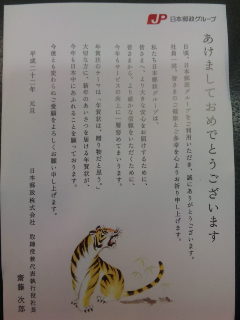 JP 日本郵政グループ
あけましておめでとうございます
日頃、日本郵政グループをご利用いただき、誠にありがとうございます。
社員一同、皆さまのご健康とご多幸を心よりお祈り申し上げます。
私たち日本郵政グループは、
皆さまへ、より大きな安心をお届けするために、
皆さまから、より厚い信頼をいただくために、
今年もサービスの向上に一層努めてまいります。
年賀状のテーマは「年賀状は、贈り物だと思う。」
大切な方に、新年のあいさつを届ける年賀状が、
今年も日本中にあふれることを願っております。
今後とも変わらぬご愛顧をよろしくお願い申し上げます。
平成二十二年 元旦
日本郵政株式会社 取締役兼代表執行役社長
齋藤 次郎